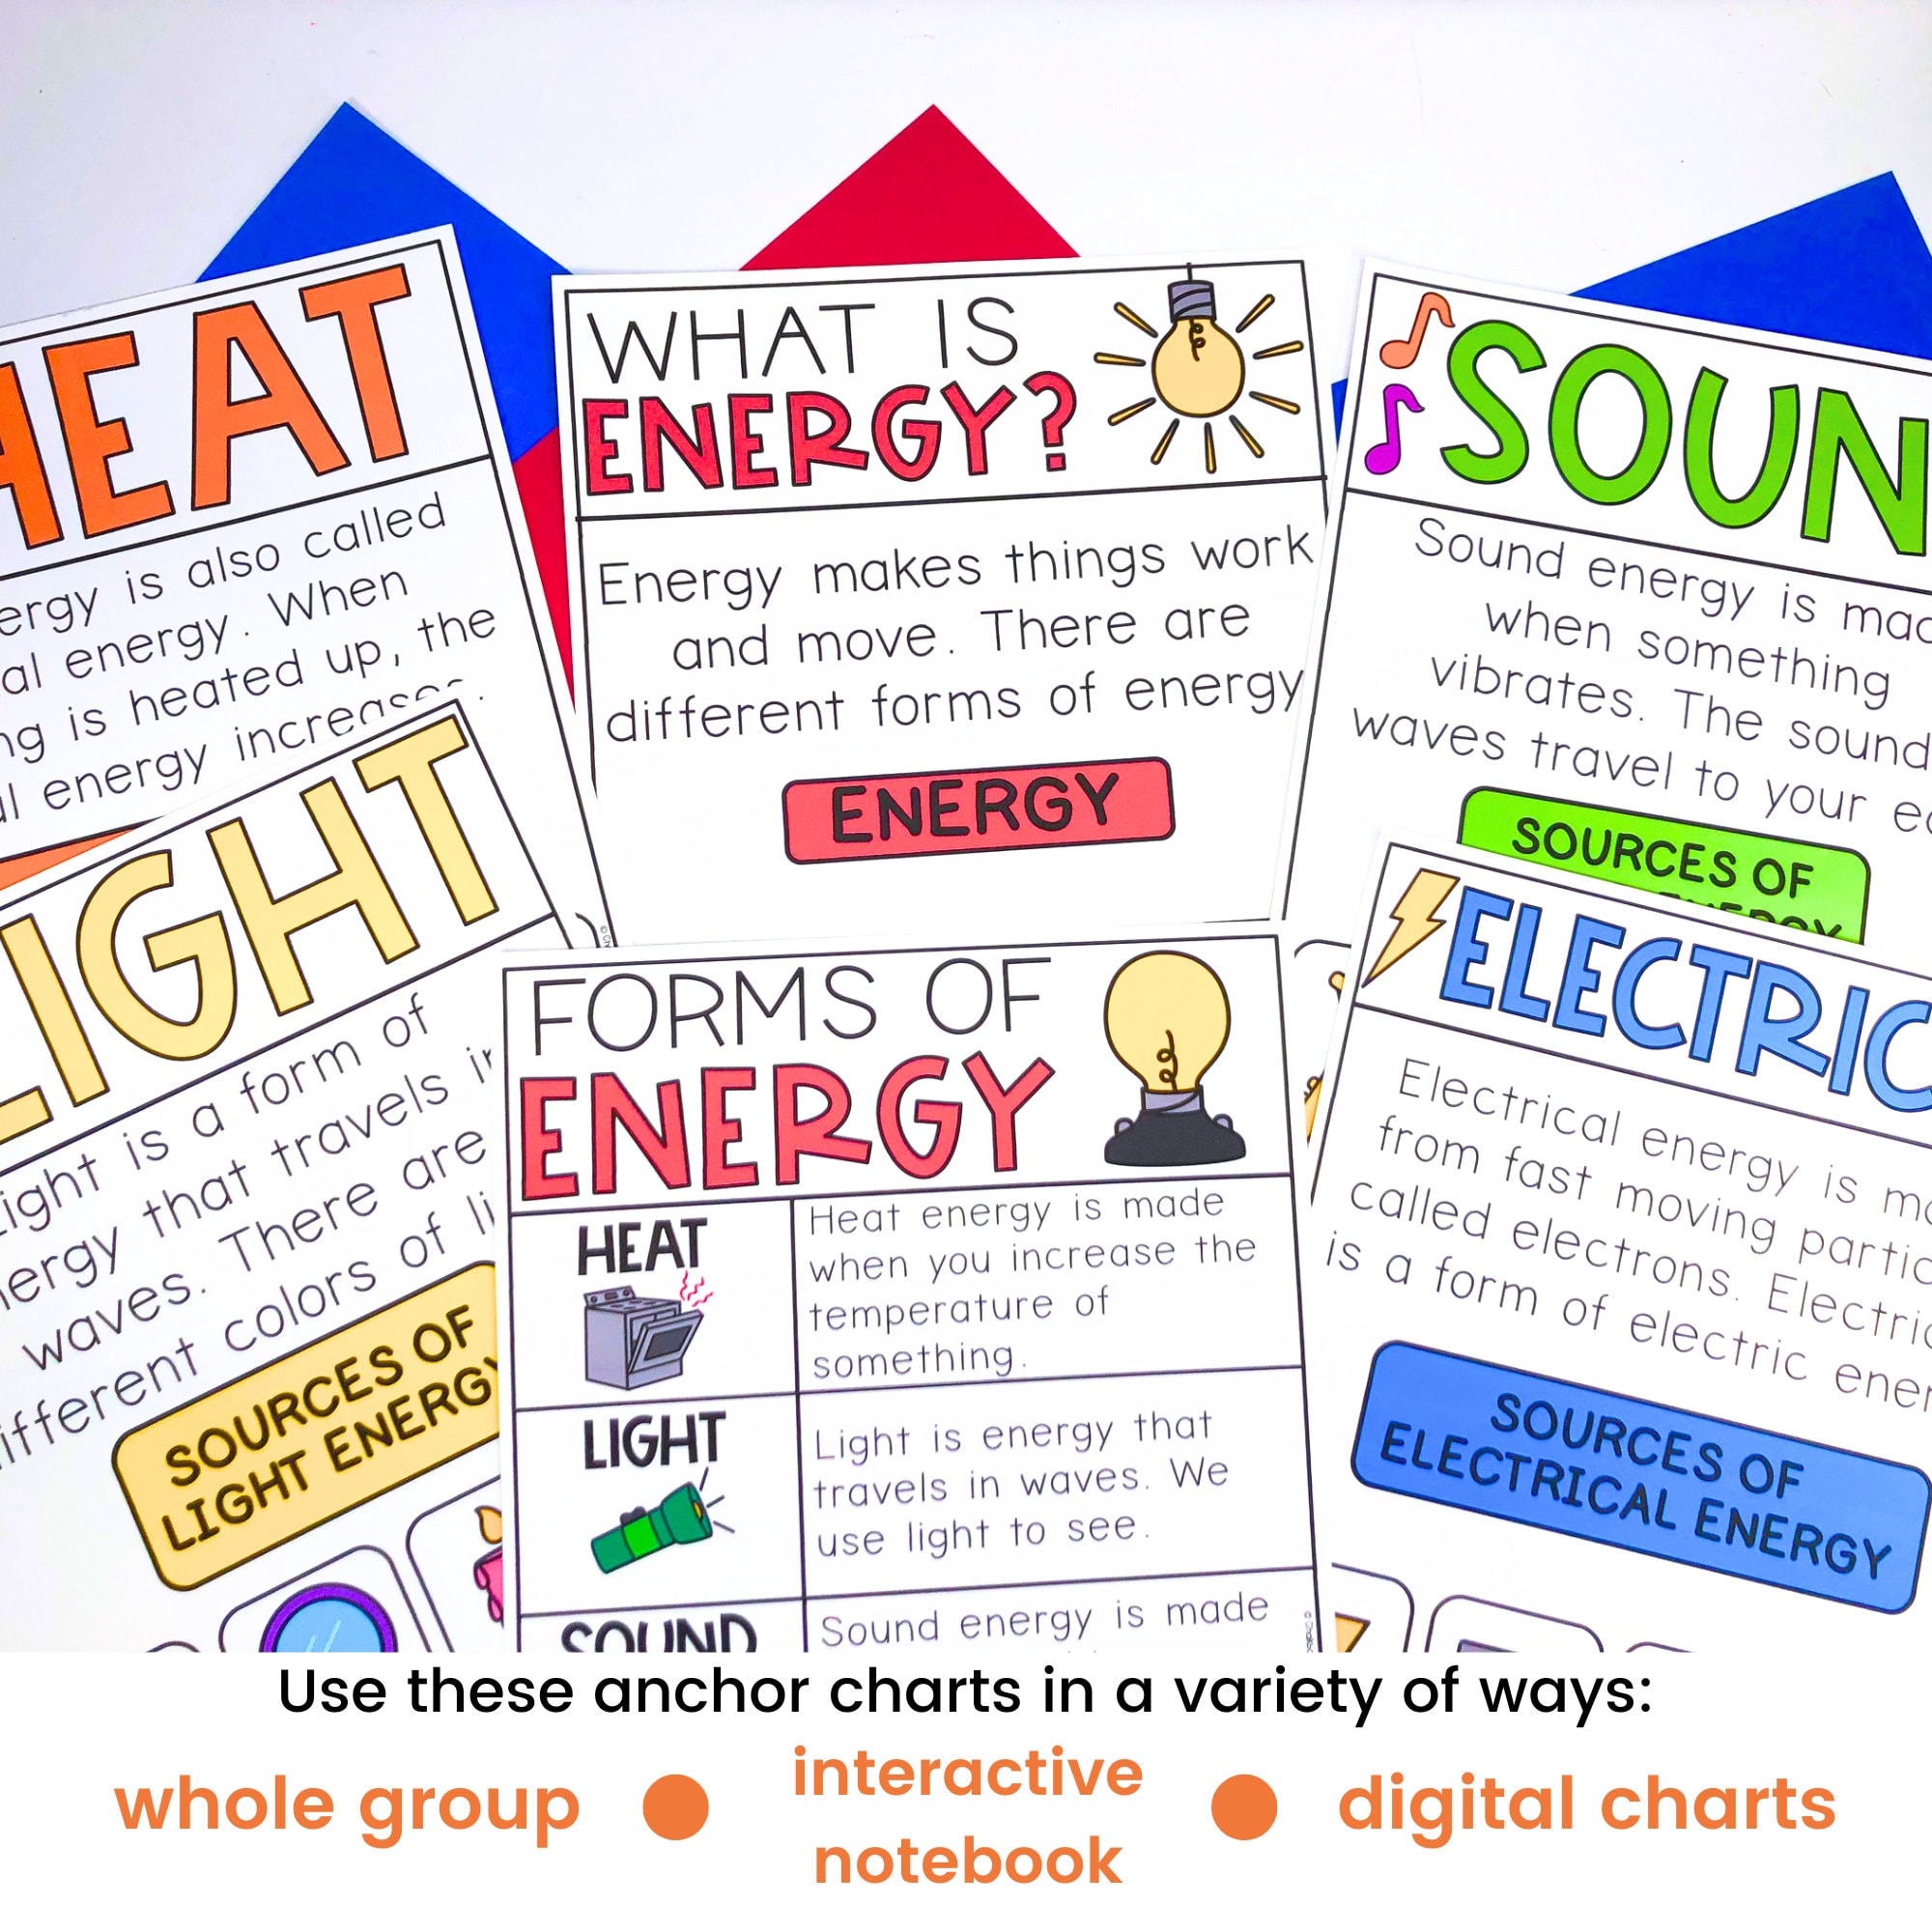 HEAT
is also called
energy. When
is heated up, the
energy
WHAT IS
ENERGY?
Energy makes things work
and move. There are
different forms of energy
ENERGY
SOUN
Sound energy is
when something
vibrates. The sound
waves travel to your
SOURCES OF
LIGHT
is a form of
that travels
waves. There are
colors of
SOURCES OF
LIGHT ENERGY
FORMS OF
ENERGY
HEAT
Heat energy is made
when you increase the
temperature of
something.
LIGHT
Light is energy that
travels in waves. We
use light to see.
SOUND
Sound energy is made
ELECTRIC
Electrical energy is
from fast moving
called electrons.
is a form of electric
SOURCES OF
ELECTRICAL ENERGY
Use these anchor charts in a variety of ways:
whole group
interactive
notebook
digital charts